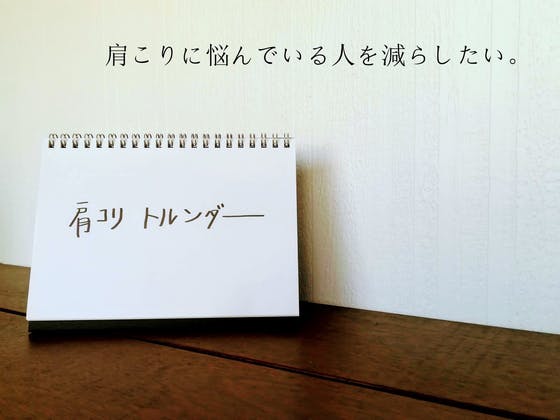 肩こりに悩んでいる人を減らしたい。
肩コリ トルンダー